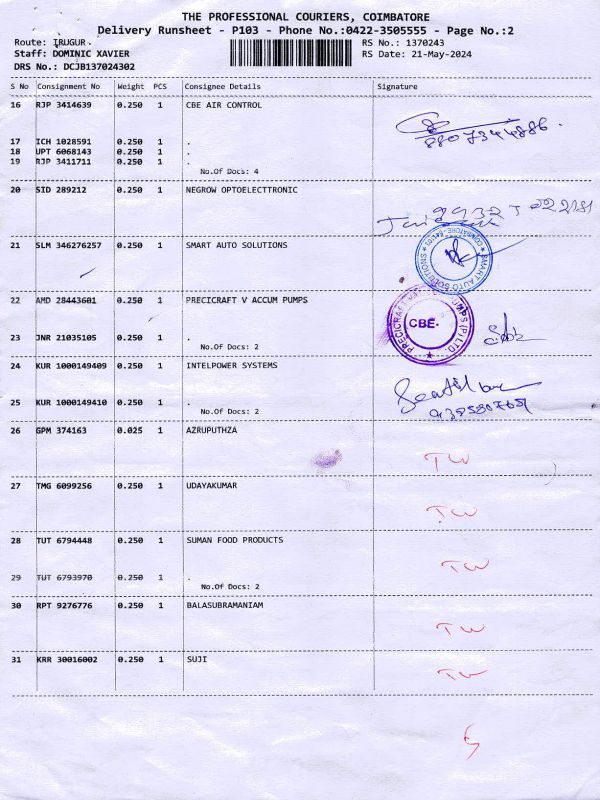 THE PROFESSIONAL COURIERS, COIMBATORE
Delivery Runsheet - P103 - Phone No.:0422-3505555 - Page No.:2
Route: IRUGUR
Staff: DOMINIC XAVIER
DRS No.: DCJB137024302
RS No.: 1370243
RS Date: 21-May-2024
S No Consignment No Weight PCS Consignee Details Signature
16 RJP 3414639 0.250 1 CBE AIR CONTROL
17 ICH 1028591 0.250 1 .
18 UPT 6068143 0.250 1 .
19 RJP 3411711 0.250 1 .
No.Of Docs: 4
20 SID 289212 0.250 1 NEGROW OPTOELECTTRONIC
21 SLM 346276257 0.250 1 SMART AUTO SOLUTIONS
SMART AUTO SOLUTIONS
22 AMD 28443601 0.250 1 PRECICRAFT V ACCUM PUMPS
CBE.
23 JNR 21035105 0.250 1 .
No.Of Docs: 2
24 KUR 1000149409 0.250 1 INTELPOWER SYSTEMS
25 KUR 1000149410 0.250 1 .
No.Of Docs: 2
26 GPM 374163 0.025 1 AZRUPUTHZA
TW
27 TMG 6099256 0.250 1 UDAYAKUMAR
TW
28 TUT 6794448 0.250 1 SUMAN FOOD PRODUCTS
TW
29 TUT 6793970 0.250 1 .
No.Of Docs: 2
30 RPT 9276776 0.250 1 BALASUBRAMANIAM
TW
31 KRR 30016002 0.250 1 SUJI
TW